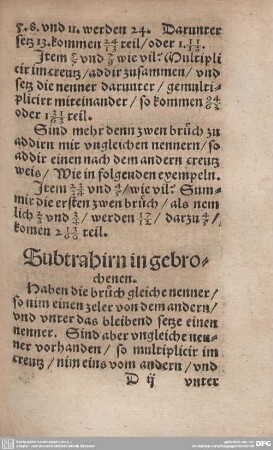 5. 8. vnd 11. werden 24. Darunter
setz 13. kommen 24/13 teil/ oder 1. 11/13.
Item vnd wie vil? Multiplicir
im creutz/ addir zusammen/ vnd
setz die nenner darunter/ gemulti-
plicirt miteinander/ so kommen 94
oder 1 31/63 teil.
Sind mehr denn zwen brüch zu
addirn mit vngleichen nennern/ so
addir einen nach dem andern creutz
weis/ Wie in folgenden exempeln.
Item vnd wie vil? Sum-
mir die ersten zwen brüch/ als nem
lich 2/3 vnd 3/4/ werden 17/12/ darzu
komen 2 teil.
Subtrahirn in gebro-
chenen.
Haben die brüch gleiche nenner/
so nim einen zeler von dem andern/
vnd vnter das bleibend setze einen
nenner. Sind aber vngleiche nen-
ner vorhanden/ so multiplicir im
creutz/ nim eins vom andern/ vnd
D ij vnter